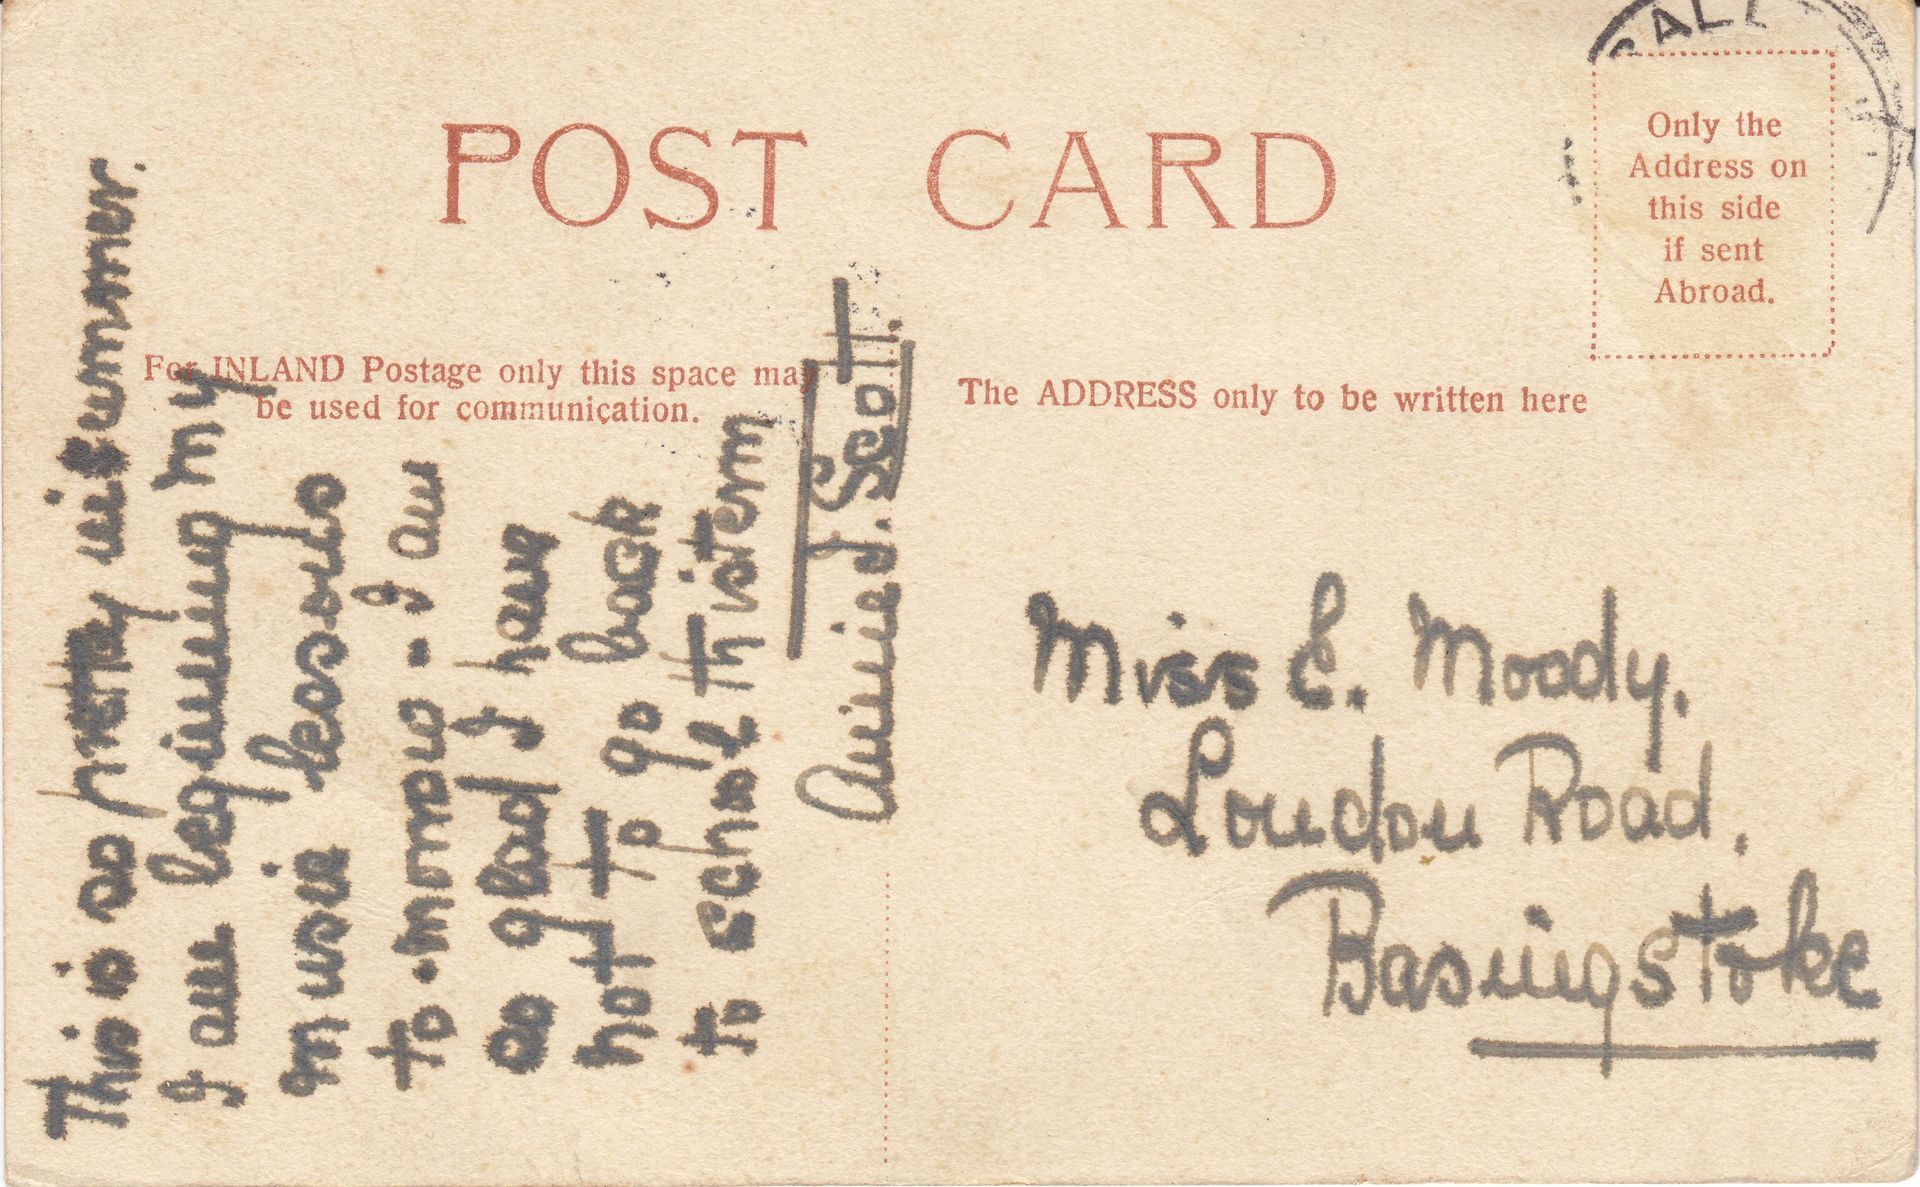 POST CARD
Only the
Address on
this side
if sent
Abroad.
For INLAND Postage only this space may
be used for communication.
The ADDRESS only to be written here
This is so pretty in summer.
I am beginning my
music lessons
to-morrow - I am
so glad I have
not to go back
to school this term
Annie J. Scott.
Miss E. Moody.
London Road,
Basingstoke